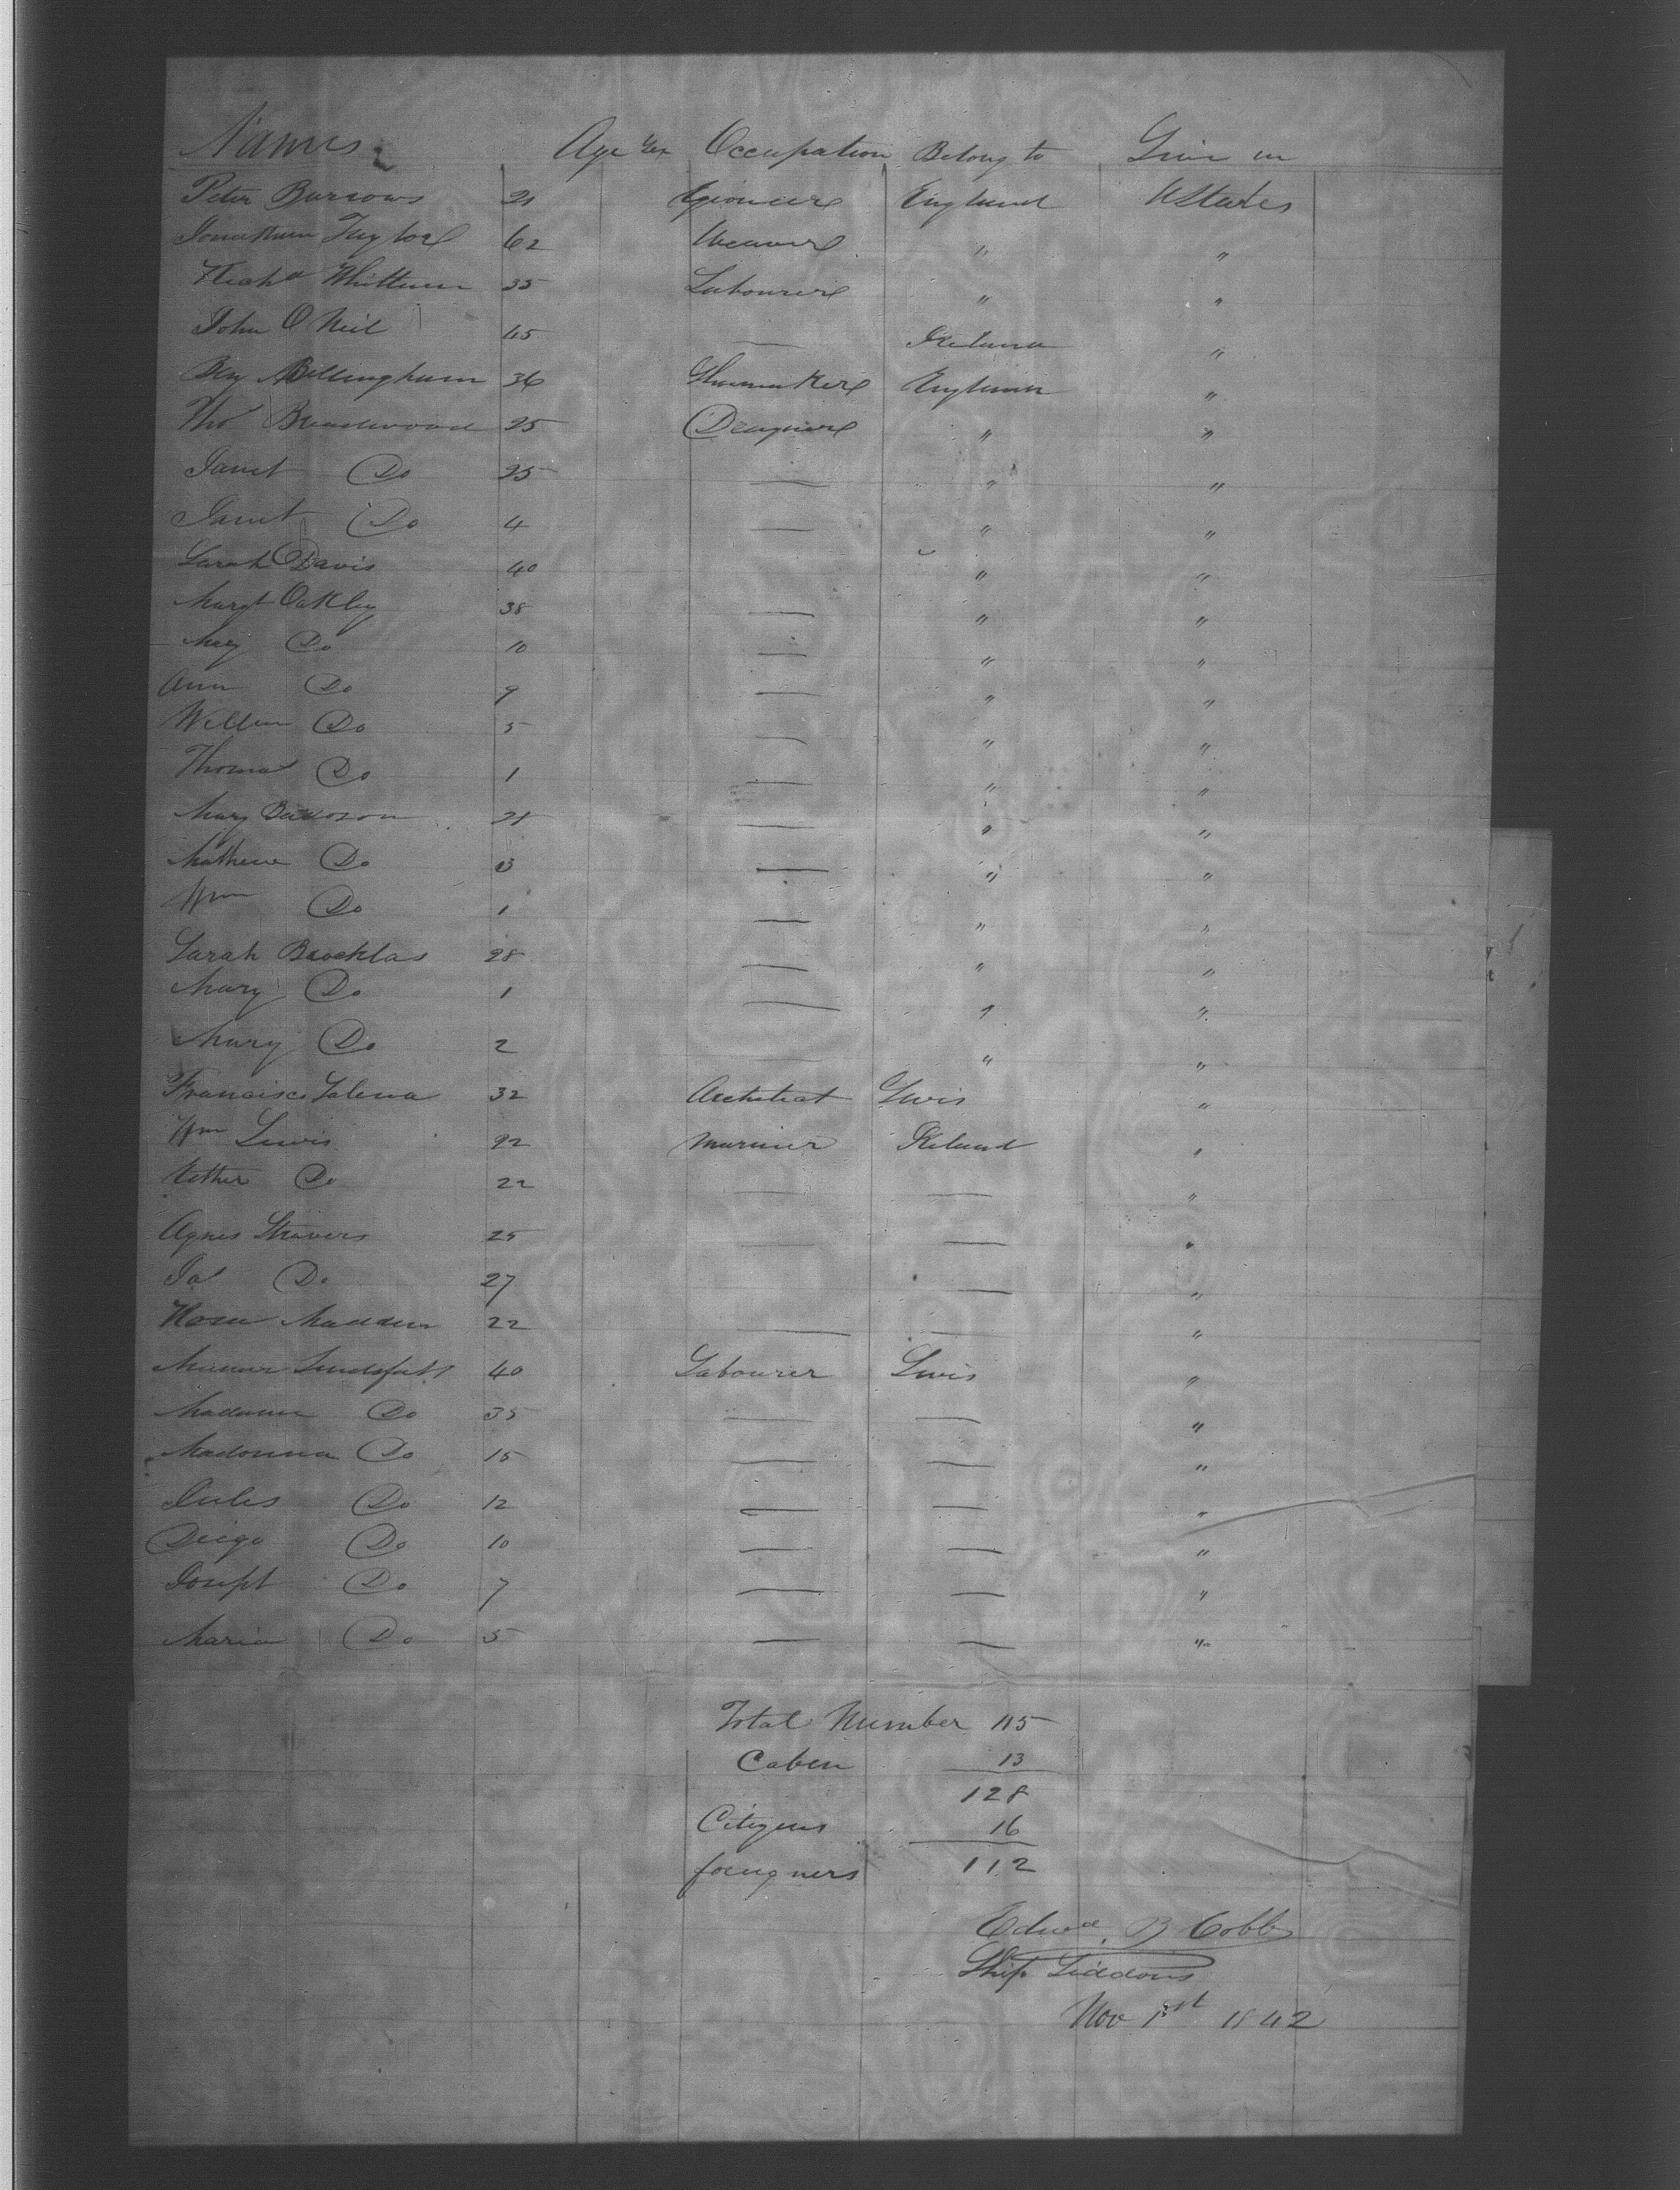 Names Age Sex Occupation Belong to Live in
Peter Burrows 21 England UStates
Jonathan Taylor 62 Weaver " "
Richd Whittum 35 Labourer " "
John O Neil 45 — Ireland "
Billingham 36 Shoemaker England "
Thos Broadwood 25 " "
Janet Do 25 — " "
Janet Do 4 — " "
Sarah Davis 40 " "
Margt Oakley 38 — " "
Mary Do 10 — " "
Ann Do 9 — " "
William Do 5 — " "
Thomas Do 1 — " "
Mary 21 — " "
Mathew Do 3 — " "
Wm Do 1 — " "
Sarah Brocklas 28 — " "
Mary Do 1 — " "
Mary Do 2 — " "
Francisco Salena 32 Architect Swis "
Wm Lewis 22 Mariner Ireland "
Esther Do 22 — — "
Agnes Stravers 25 — — "
Jas Do 27 — "
Madden 22 — — "
40 Labourer Swis "
Madame Do 35 — — "
Madonna Do 15 — — "
Jules Do 12 — — "
Diego Do 10 — — "
Joseph Do 7 — — "
Maria Do 5 — — "
Total Number 115
Caben 13
128
Citizens 16
foreigners 112
Edwd B Cobb
Ship Siddons
Nov 1st 1842